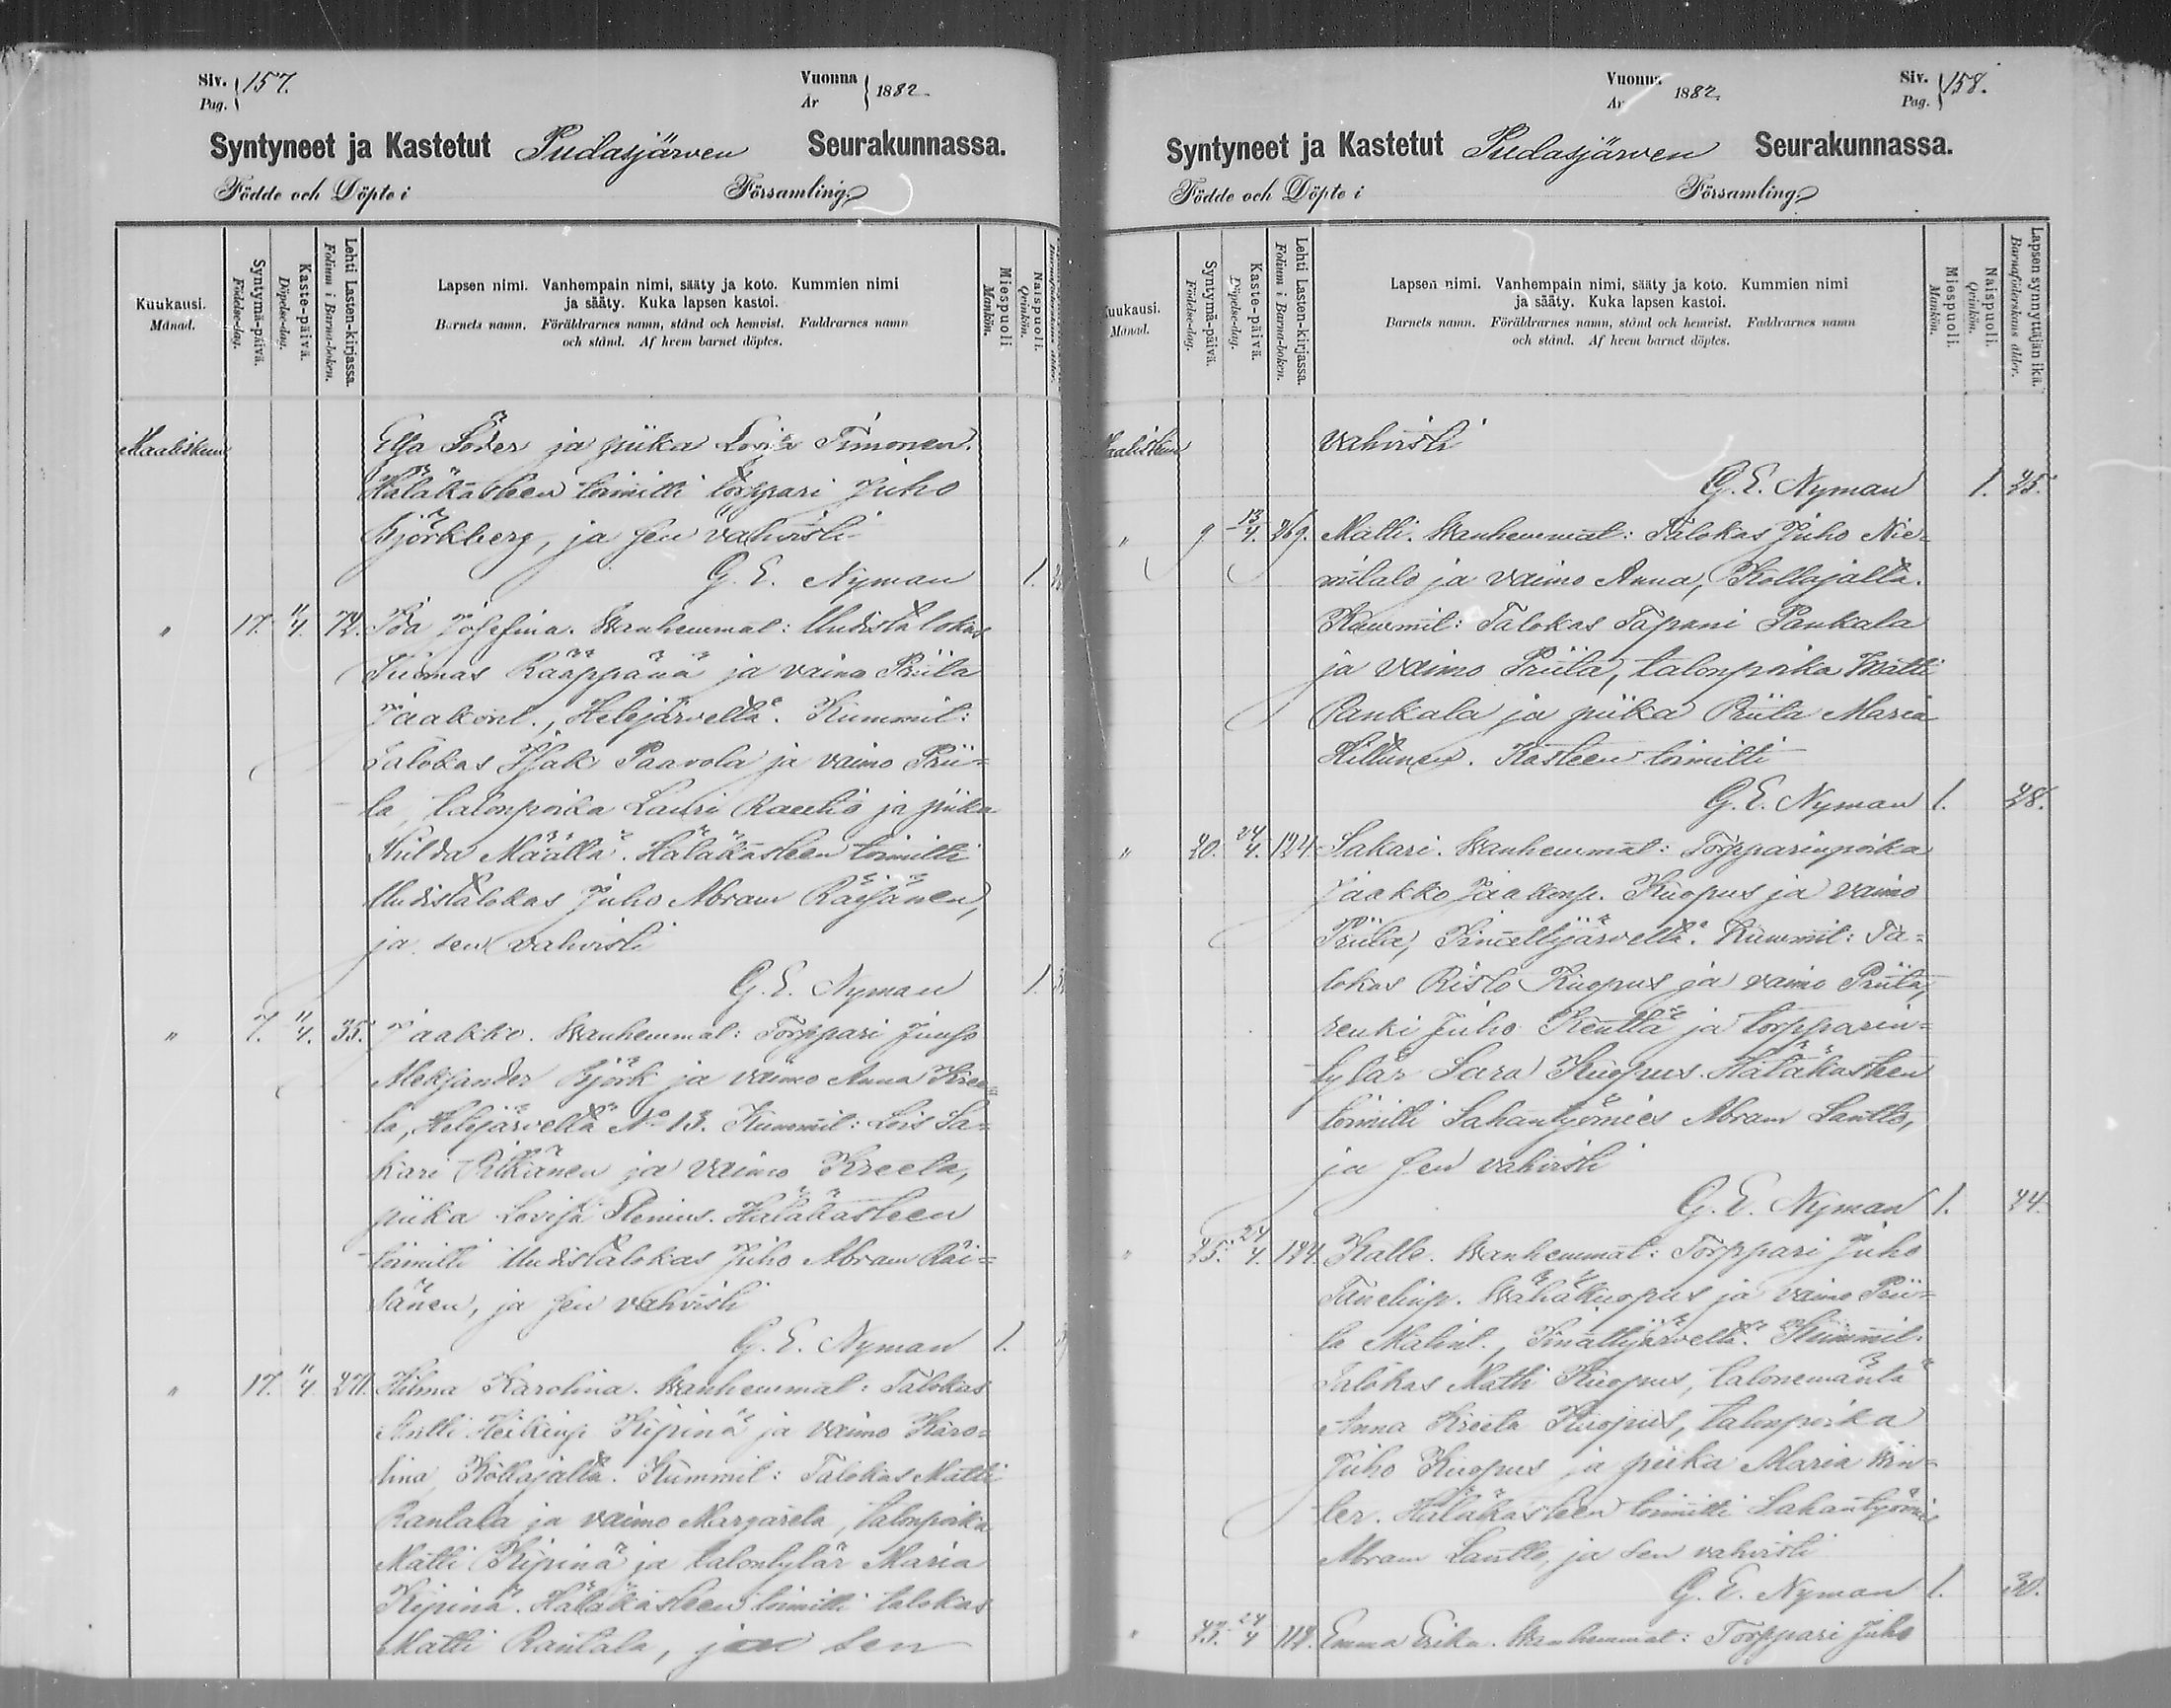 Siv. Pag. 157.
Vuonna År 1882.
Syntyneet ja Kastetut Pudasjärven Seurakunnassa.
Födde och Döpte i Församling.
Kuukausi. Månad.
Syntymä-päivä. Födelse-dag.
Kaste-päivä. Döpelse-dag.
Lehti Lasten-kirjassa. Folium i Barna-boken.
Lapsen nimi. Vanhempain nimi, sääty ja koto. Kummien nimi
ja sääty. Kuka lapsen kastoi.
Barnets namn. Föräldrarnes namn, stånd och hemvist. Faddrarnes namn
och stånd. Af hvem barnet döptes.
Miespuoli. Mankön.
Naispuoli. Qvinkön.
Maaliskuu Elsa Söder ja piika Lovisa Timonen.
Hätäkasteen toimitti torppari Juho
Björkberg, ja sen vahvisti
G. E. Nyman 1.
" 17. 11/4. 72. Ida Josefina. Wanhemmat: Uudistalokas
Tuomas Kääppänä ja vaimo Priita
Jaakont., Hetejärveltä. Kummit:
Talokas Isak Paavola ja vaimo Prii=
ta, talonpoika Lauri Rautio ja piika
Hilda Määttä. Hätäkasteen toimitti
Uudistalokas Juho Abram Räisänen,
ja sen vahvisti
G. E. Nyman 1.
" 7. 11/4. 35. Jaakko. Wanhemmat: Torppari Juuso
Aleksander Björk ja vaimo Anna Kree=
ta, Hetejärveltä No 13. Kummit: Lois Sa=
kari Pitkänen ja vaimo Kreeta,
piika Lovisa Stenius. Hätäkasteen
toimitti Uudistalokas Juho Abram Räi=
sänen, ja sen vahvisti
G. E. Nyman 1.
" 17. 11/4. 271. Hilma Karolina. Wanhemmat: Talokas
Antti Heikinp. Kipinä ja vaimo Karo=
lina, Kollajalta. Kummit: Talokas Matti
Rantala ja vaimo Margareta, talonpoika
Matti Kipinä ja talontytär Maria
Kipinä. Hätäkasteen toimitti talokas
Matti Rantala, ja sen
Vuonna År 1882.
Siv. Pag. 158.
Syntyneet ja Kastetut Pudasjärven Seurakunnassa.
Födde och Döpte i Församling.
Kuukausi. Månad.
Syntymä-päivä. Födelse-dag.
Kaste-päivä. Döpelse-dag.
Lehti Lasten-kirjassa. Folium i Barna-boken.
Lapsen nimi. Vanhempain nimi, sääty ja koto. Kummien nimi
ja sääty. Kuka lapsen kastoi.
Barnets namn. Föräldrarnes namn, stånd och hemvist. Faddrarnes namn
och stånd. Af hvem barnet döptes.
Miespuoli. Mankön.
Naispuoli. Qvinkön.
Lapsen synnyttäjän ikä. Barnaföderskans ålder.
Maaliskuu vahvisti
G. E. Nyman 1. 25.
" 9 13/4. 269. Matti. Wanhemmat: Talokas Juho Nie=
mitalo ja vaimo Anna, Kollajalta.
Kummit: Talokas Tapani Pankala
ja vaimo Priita, talonpoika Matti
Pankala ja piika Priita Maria
Hiltunen. Kasteen toimitti
G. E. Nyman 1. 28.
" 20. 24/4. 124. Sakari. Wanhemmat: Torpparinpoika
Jaakko Jaakonp. Kuopus ja vaimo
Priita, Sinettijärveltä. Kummit: Ta=
lokas Risto Kuopus ja vaimo Priita,
renki Juho Kenttä ja torpparin=
tytär Sara Kuopus. Hätäkasteen
toimitti Sahantyömies Abram Lantto,
ja sen vahvisti
G. E. Nyman 1. 24.
" 25. 24/4. 124. Kalle. Wanhemmat: Torppari Juho
Tanelinp. Wähäkuopus ja vaimo Prii=
ta Matint., Sinettijärveltä. Kummit:
Talokas Matti Kuopus, talonemäntä
Anna Kreeta Kuopus, talonpoika
Juho Kuopus ja piika Maria Win=
ter. Hätäkasteen toimitti Sahantyömies
Abram Lantto, ja sen vahvisti
G. E. Nyman 1. 30.
" 24/4 Emma Erika. Wanhemmat: Torppari Juho